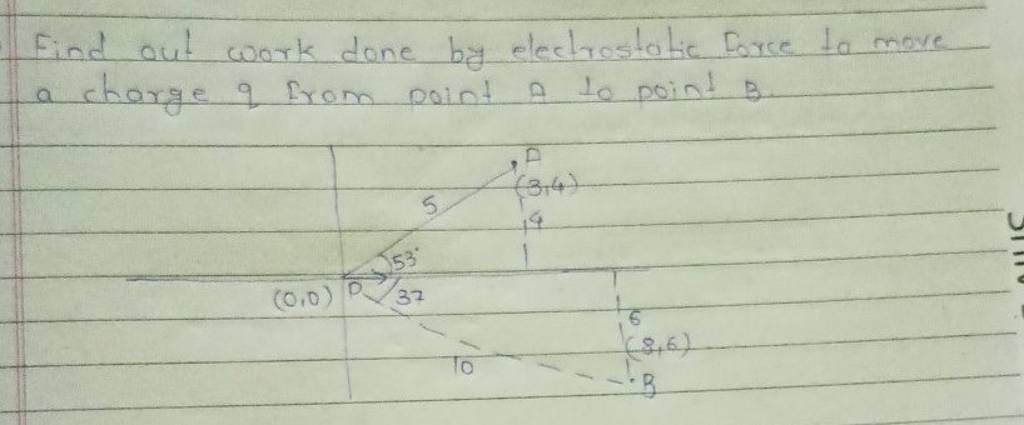 Find out work done by electrostatic force to move
a charge q from point A to point B.
A
(3,4)
5
4
53°
(0,0) P 37
6
(8,6)
10
B